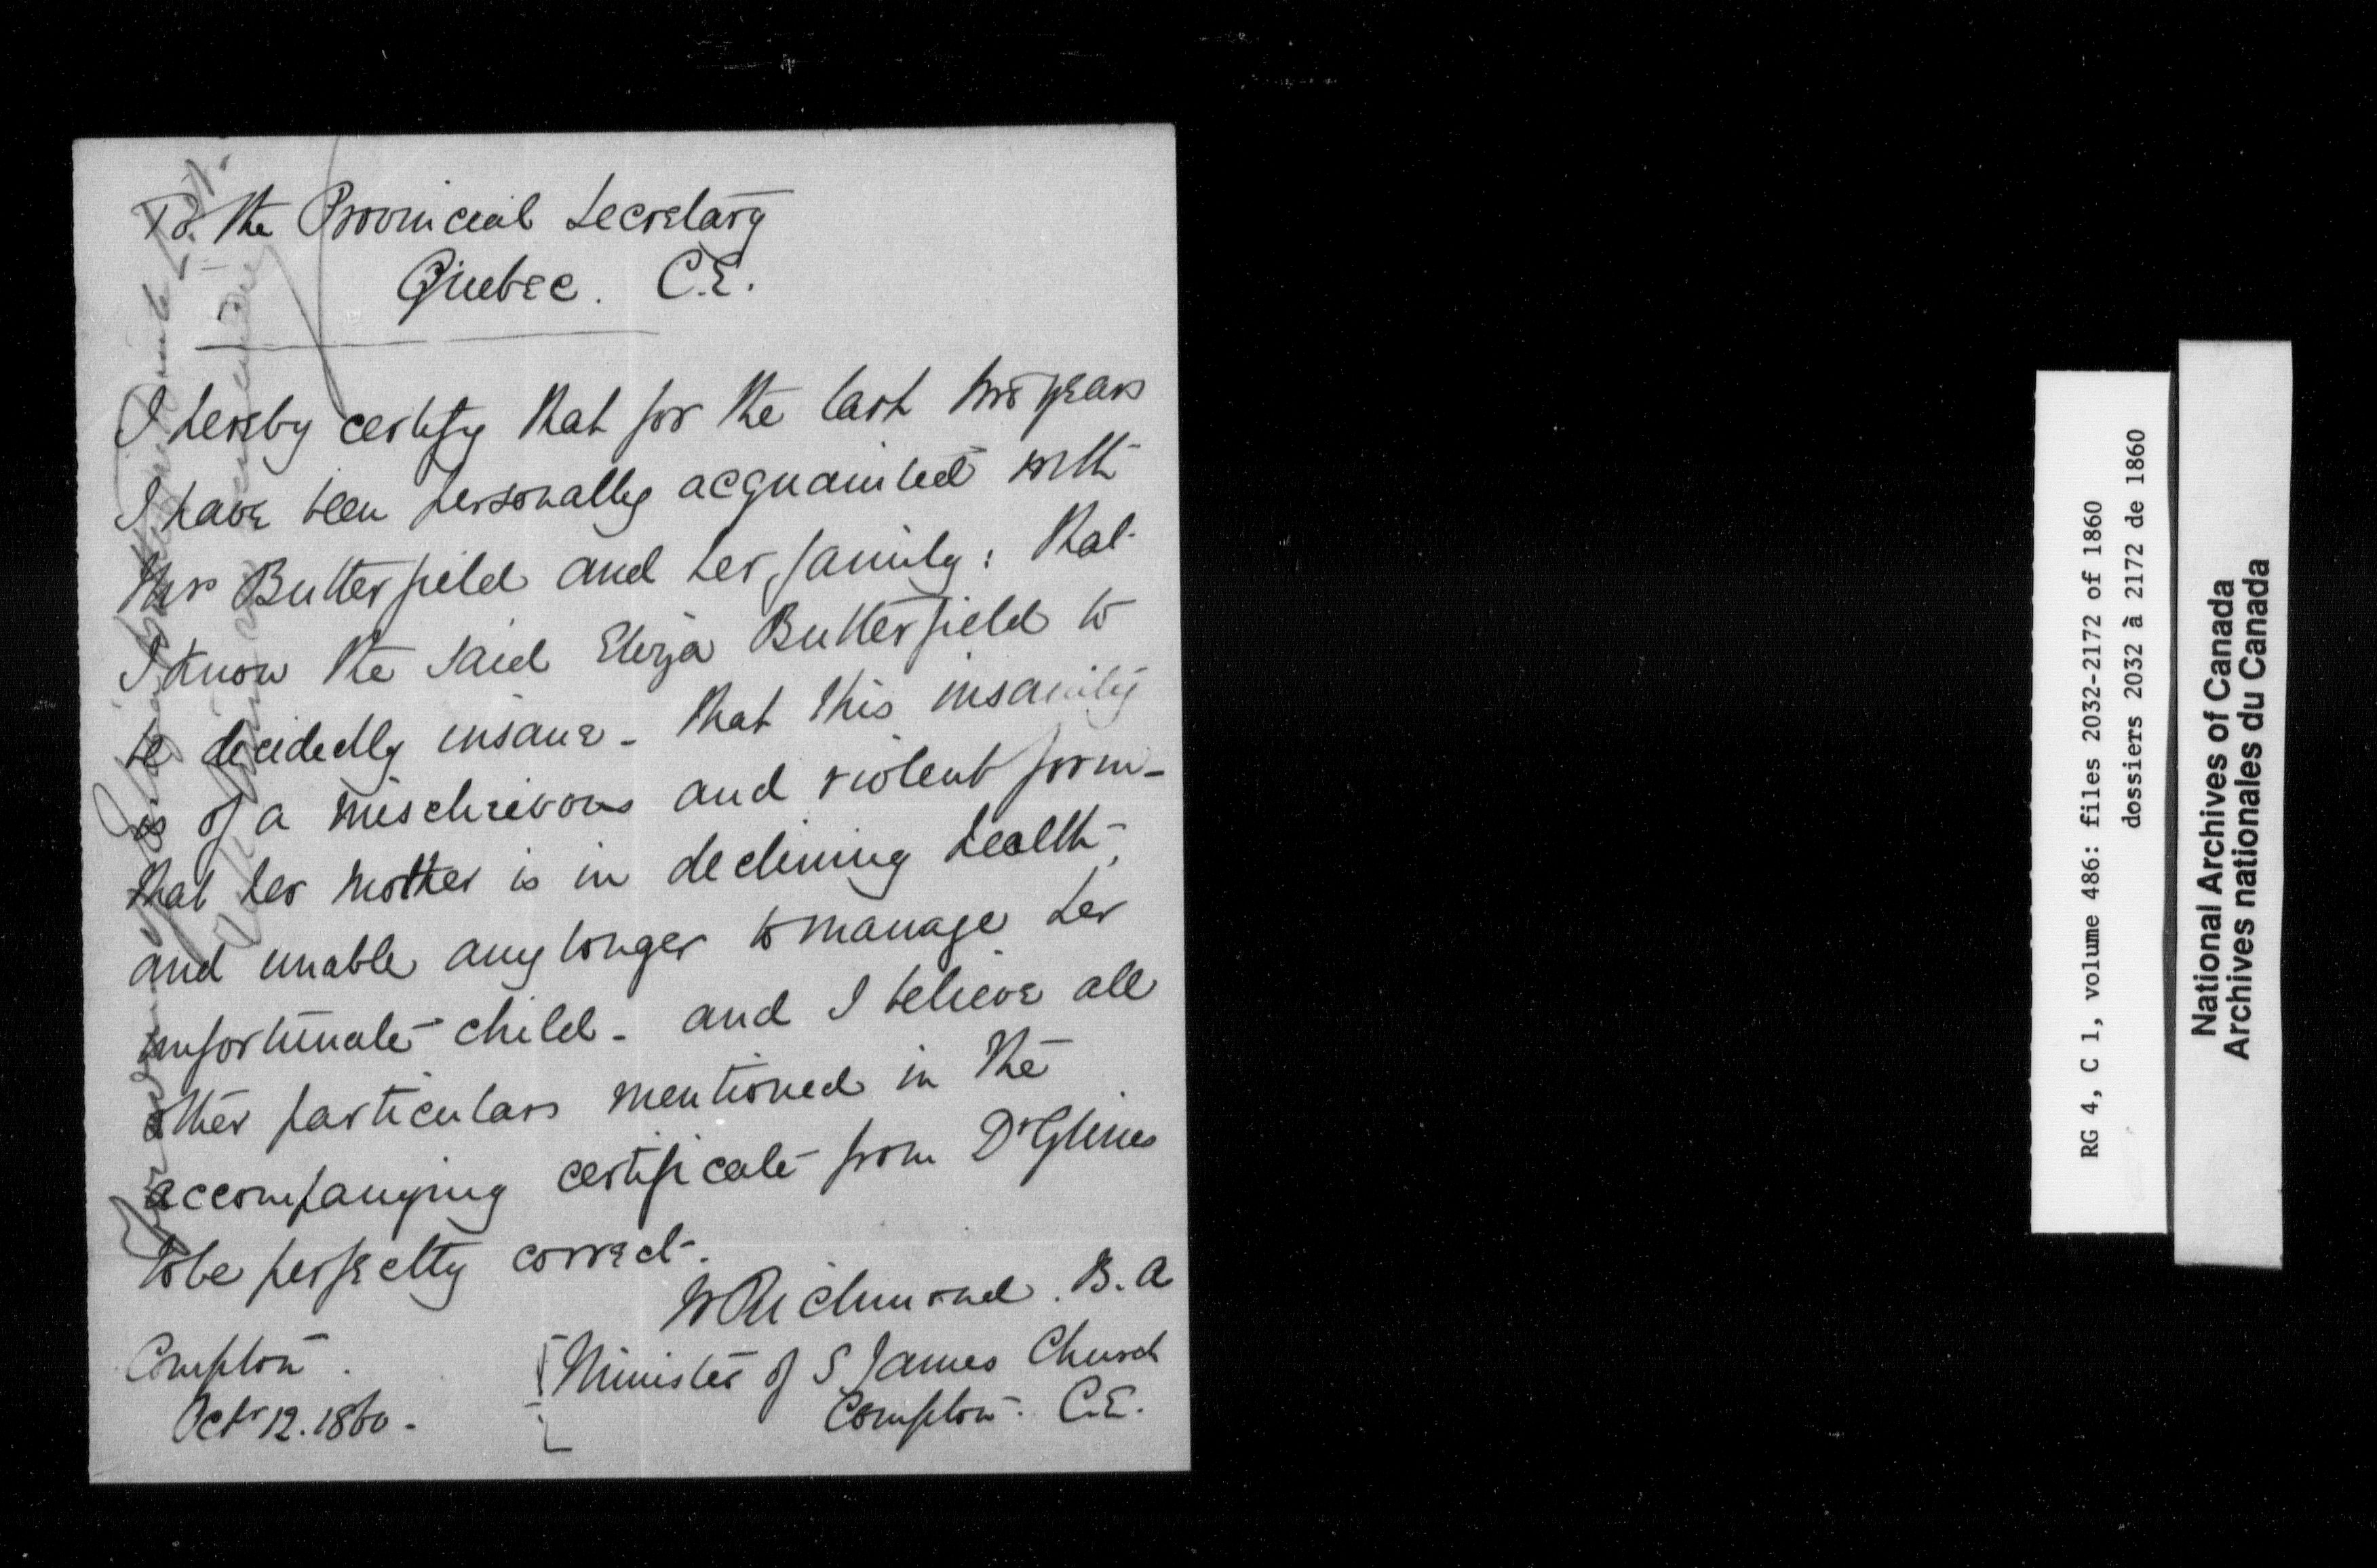 To the Provincial Secretary
Quebec. C.E.
I hereby certify that for the last two years
I have been personally acquainted with
Mrs Butterfield and her family: that
I know the said Eliza Butterfield to
be decidedly insane - that this insanity
is of a mischievous and violent form -
that her mother is in declining health,
and unable any longer to manage her
unfortunate child - and I believe all
other particulars mentioned in the
accompanying certificate from Dr Glines
to be perfectly correct -
W Richmond. B.A
Minister of S. James Church
Compton. C.E.
Compton.
Octr 12. 1860 -
RG 4, C 1, volume 486: files 2032-2172 of 1860
dossiers 2032 à 2172 de 1860
National Archives of Canada
Archives nationales du Canada